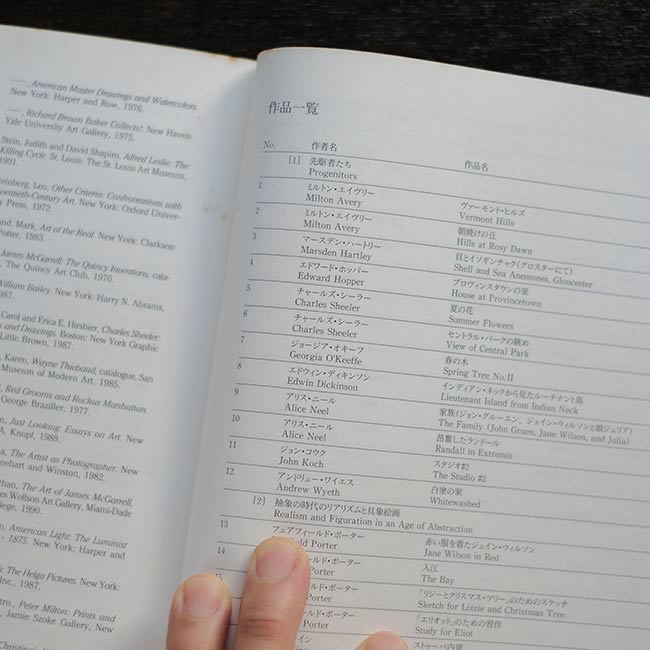 ——, American Master Drawings and Watercolors.
New York: Harper and Row, 1976.
——, Richard Brown Baker Collects! New Haven:
Yale University Art Gallery, 1975.
Stein, Judith and David Shapiro, Alfred Leslie: The
Killing Cycle. St. Louis: The St. Louis Art Museum,
1991.
Steinberg, Leo, Other Criteria: Confrontations with
Twentieth-Century Art. New York: Oxford Univer-
y Press, 1972.
and, Mark, Art of the Real. New York: Clarkson
Potter, 1983.
James McGarrell: The Quincy Inventions, cata-
, The Quincy Art Club, 1970.
William Bailey. New York: Harry N. Abrams,
987.
Carol and Erica E. Hirshler, Charles Sheeler:
s and Drawings. Boston: New York Graphic
Little Brown, 1987.
, Karen, Wayne Thiebaud, catalogue, San
Museum of Modern Art, 1985.
, Red Grooms and Ruckus Manhattan.
George Braziller, 1977.
n, Just Looking: Essays on Art. New
A. Knopf, 1989.
a, The Artist as Photographer. New
nehart and Winston, 1982.
than, The Art of James McGarrell,
s Wolfson Art Gallery, Miami-Dade
lege, 1990.
n, American Light: The Luminist
- 1875. New York: Harper and
s: The Helga Pictures. New York:
Inc., 1987.
tro., Peter Milton: Prints and
, Jamie Szoke Gallery, New
Christie's New
作品一覧
No. 作者名 作品名
[1] 先駆者たち
Progenitors
1 ミルトン・エイヴリー ヴァーモント・ヒルズ
Milton Avery Vermont Hills
2 ミルトン・エイヴリー 朝焼けの丘
Milton Avery Hills at Rosy Dawn
3 マースデン・ハートリー 貝とイソギンチャク(グロスターにて)
Marsden Hartley Shell and Sea Anemones, Gloucester
4 エドワード・ホッパー プロヴィンスタウンの家
Edward Hopper House at Provincetown
5 チャールズ・シーラー 夏の花
Charles Sheeler Summer Flowers
6 チャールズ・シーラー セントラル・パークの眺め
Charles Sheeler View of Central Park
7 ジョージア・オキーフ 春の木
Georgia O'Keeffe Spring Tree No.II
8 エドウィン・ディキンソン インディアン・ネックから見たルーテナント島
Edwin Dickinson Lieutenant Island from Indian Neck
9 アリス・ニール 家族(ジョン・グルーエン、ジェイン・ウィルソンと娘ジュリア)
Alice Neel The Family (John Gruen, Jane Wilson, and Julia)
10 アリス・ニール 昂奮したランドール
Alice Neel Randall in Extremis
11 ジョン・コウク スタジオ#2
John Koch The Studio #2
12 アンドリュー・ワイエス 白塗の家
Andrew Wyeth Whitewashed
[2] 抽象の時代のリアリズムと具象絵画
Realism and Figuration in an Age of Abstraction
13 フェアフィールド・ポーター 赤い服を着たジェイン・ウィルソン
ield Porter Jane Wilson in Red
14 ールド・ポーター 入江
Porter The Bay
15 ールド・ポーター 「リジーとクリスマス・ツリー」のためのスケッチ
Porter Sketch for Lizzie and Christmas Tree
ールド・ポーター 「エリオット」のための習作
Porter Study for Eliot
イン